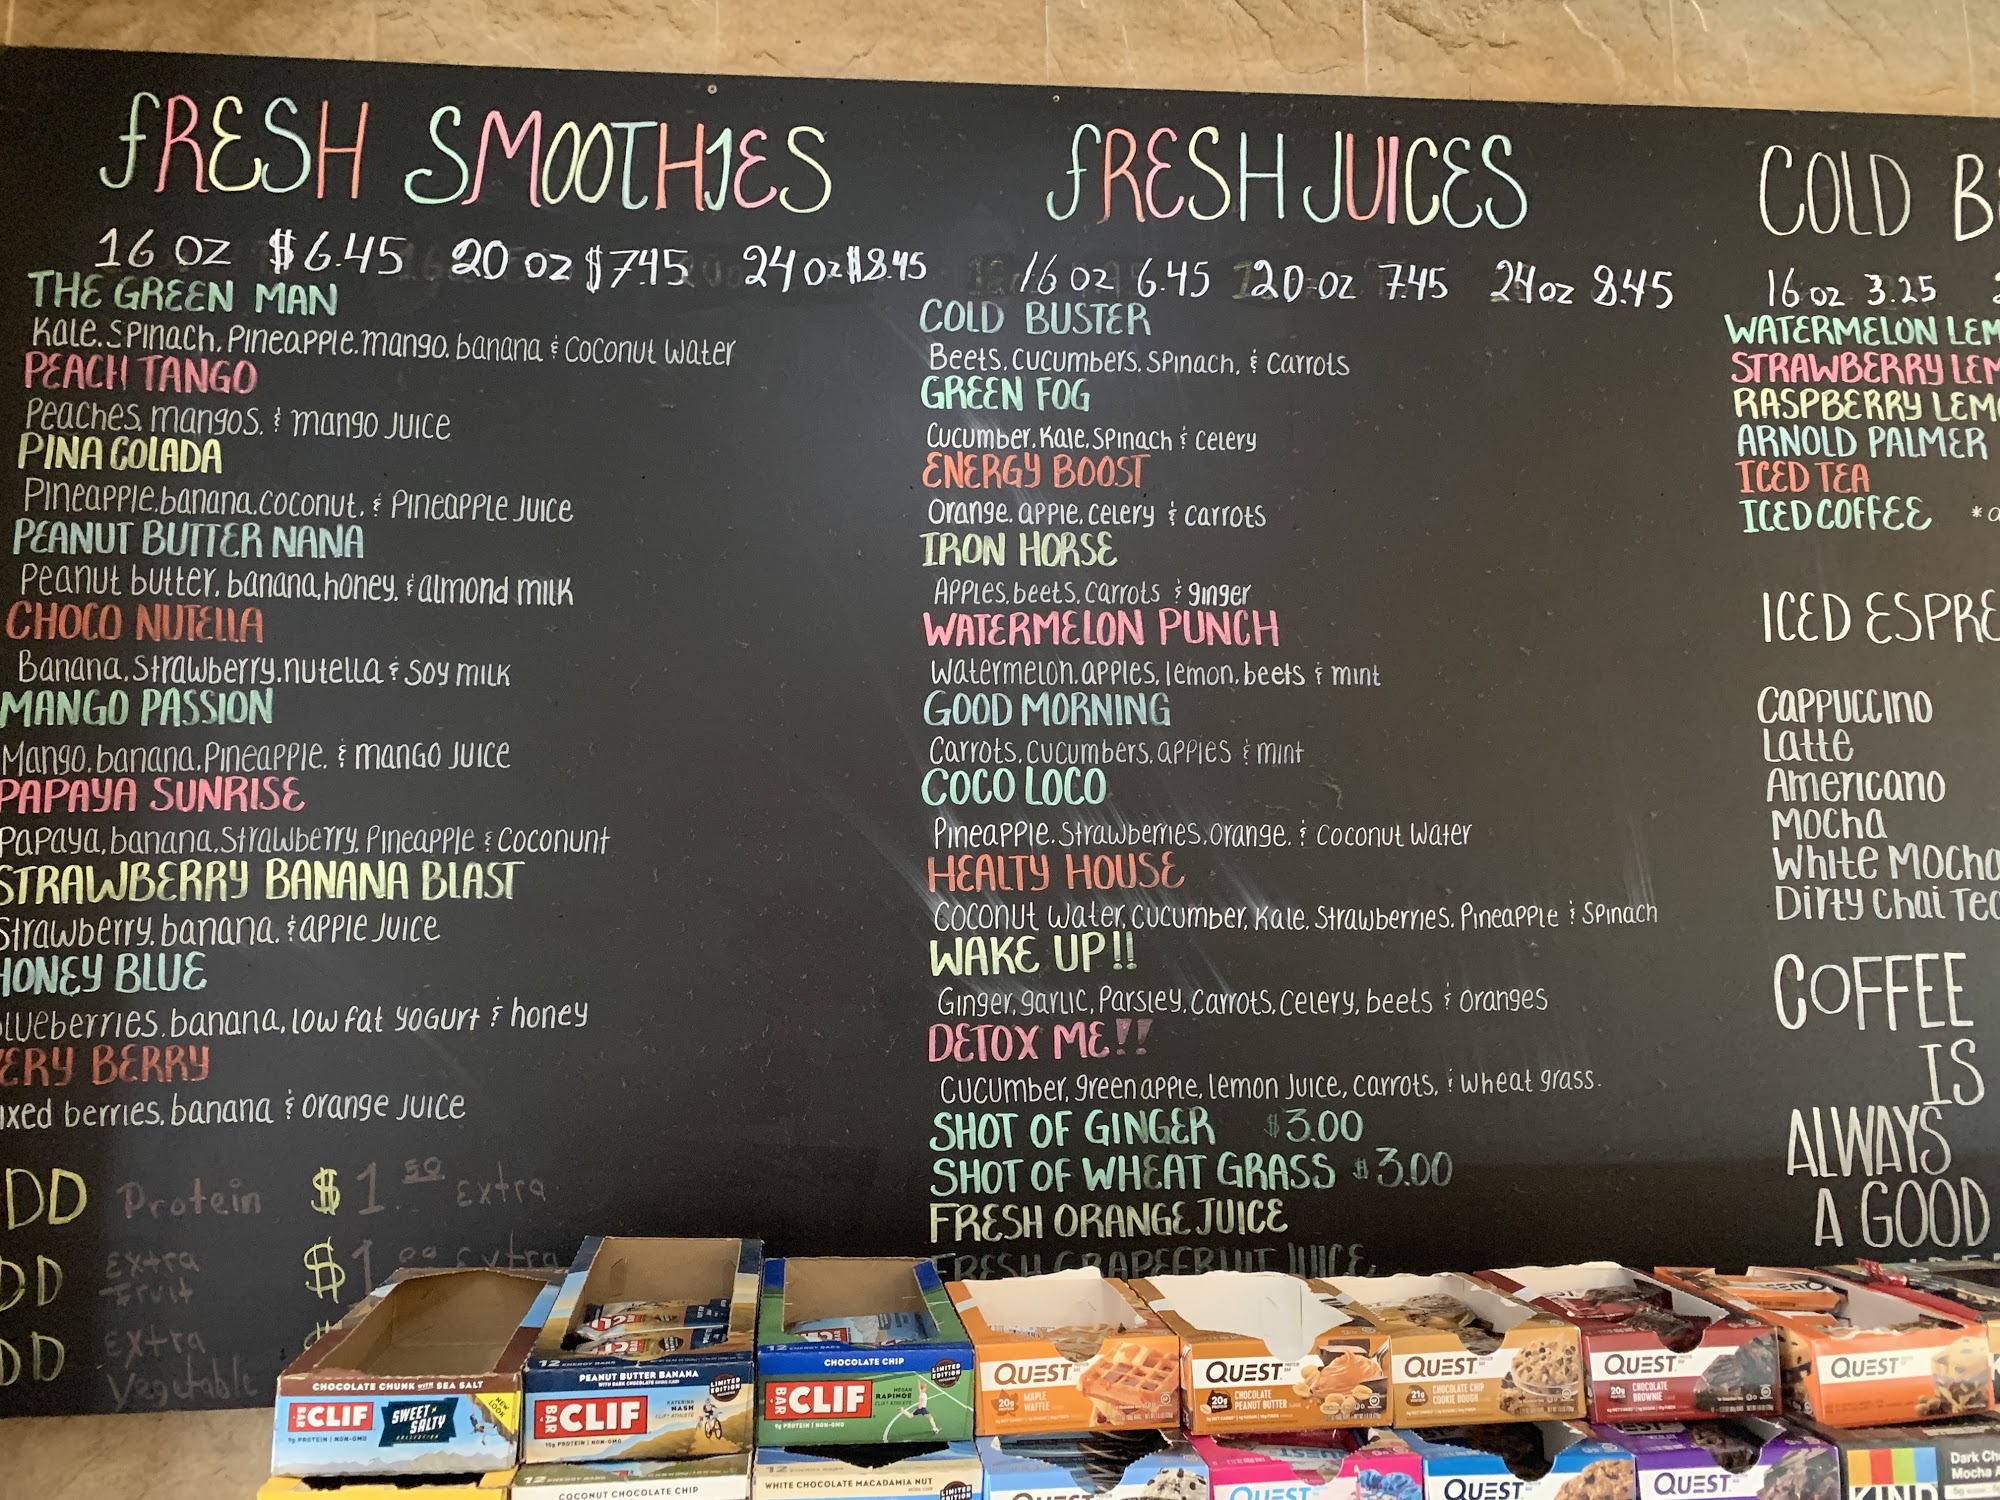 fRESH SMOOTHIES
16 oz $6.45 20 oz $7.45 24 oz $8.45
THE GREEN MAN
Kale. Spinach. Pineapple. mango. banana & coconut water
PEACH TANGO
Peaches. mangos. & mango juice
PINA COLADA
Pineapple. banana. coconut. & Pineapple juice
PEANUT BUTTER NANA
Peanut butter. banana, honey. & almond milk
CHOCO NUTELLA
Banana. Strawberry. nutella & soy milk
MANGO PASSION
Mango. banana. Pineapple. & mango juice
PAPAYA SUNRISE
Papaya, banana. Strawberry. Pineapple & coconunt
STRAWBERRY BANANA BLAST
Strawberry. banana. & apple juice
HONEY BLUE
lueberries. banana, low fat yogurt & honey
ERY BERRY
ixed berries. banana & orange juice
DD Protein $1.50 Extra
DD Extra Fruit $1.00 Extra
DD Extra Vegetable
fRESH JUICES
16 oz 6.45 20 oz 7.45 24 oz 8.45
COLD BUSTER
Beets. cucumbers. spinach. & carrots
GREEN FOG
cucumber. Kale. spinach & celery
ENERGY BOOST
Orange. apple. celery & carrots
IRON HORSE
Apples. beets. carrots & ginger
WATERMELON PUNCH
Watermelon. apples. lemon. beets & mint
GOOD MORNING
Carrots. cucumbers. apples & mint
COCO LOCO
Pineapple. strawberries. orange. & coconut water
HEALTY HOUSE
Coconut water, cucumber, Kale. strawberries. Pineapple & spinach
WAKE UP!!
Ginger, garlic, Parsley. Carrots, celery, beets & oranges
DETOX ME!!
Cucumber, green apple, lemon juice, carrots, & wheat grass.
SHOT OF GINGER $3.00
SHOT OF WHEAT GRASS $3.00
FRESH ORANGE JUICE
FRESH GRAPEFRUIT JUICE
COLD B
16 oz 3.25
WATERMELON LEM
STRAWBERRY LEM
RASPBERRY LEM
ARNOLD PALMER
ICED TEA
ICED COFFEE
ICED ESPRE
Cappuccino
Latte
Americano
Mocha
White Mocha
Dirty Chai Tea
COFFEE
IS
ALWAYS
A GOOD
CHOCOLATE CHUNK WITH SEA SALT
CLIF BAR
SWEET & SALTY COLLECTION
NEW LOOK
9g PROTEIN | NON-GMO
12 ENERGY BARS
PEANUT BUTTER BANANA
WITH DARK CHOCOLATE
LIMITED EDITION
CLIF BAR
KATERINA NASH
CLIF ATHLETE
10g PROTEIN | NON-GMO
CHOCOLATE CHIP
LIMITED EDITION
CLIF BAR
MEGAN RAPINOE
CLIF ATHLETE
9g PROTEIN | NON-GMO
QUEST
20g MAPLE WAFFLE
QUEST
20g CHOCOLATE PEANUT BUTTER
QUEST
21g CHOCOLATE CHIP COOKIE DOUGH
QUEST
20g CHOCOLATE BROWNIE
QUEST
12
COCONUT CHOCOLATE CHIP
WHITE CHOCOLATE MACADAMIA NUT
LIMITED EDITION
QUEST
QUEST
QUEST
QUEST
KIND
Dark Ch
Mocha A